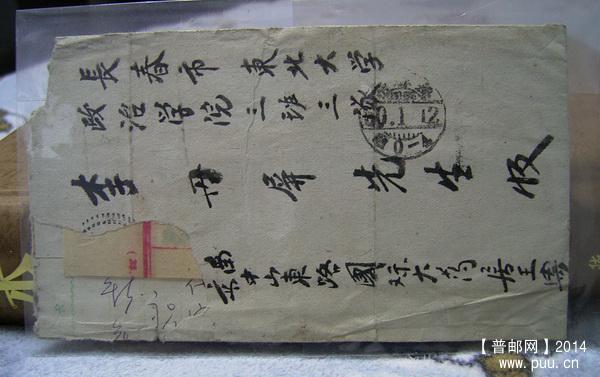 長春市東北大学
政治学院三班三
李丹屏先生收
南京中山東路國际大药房王
【普邮网】2014
www.puu.cn